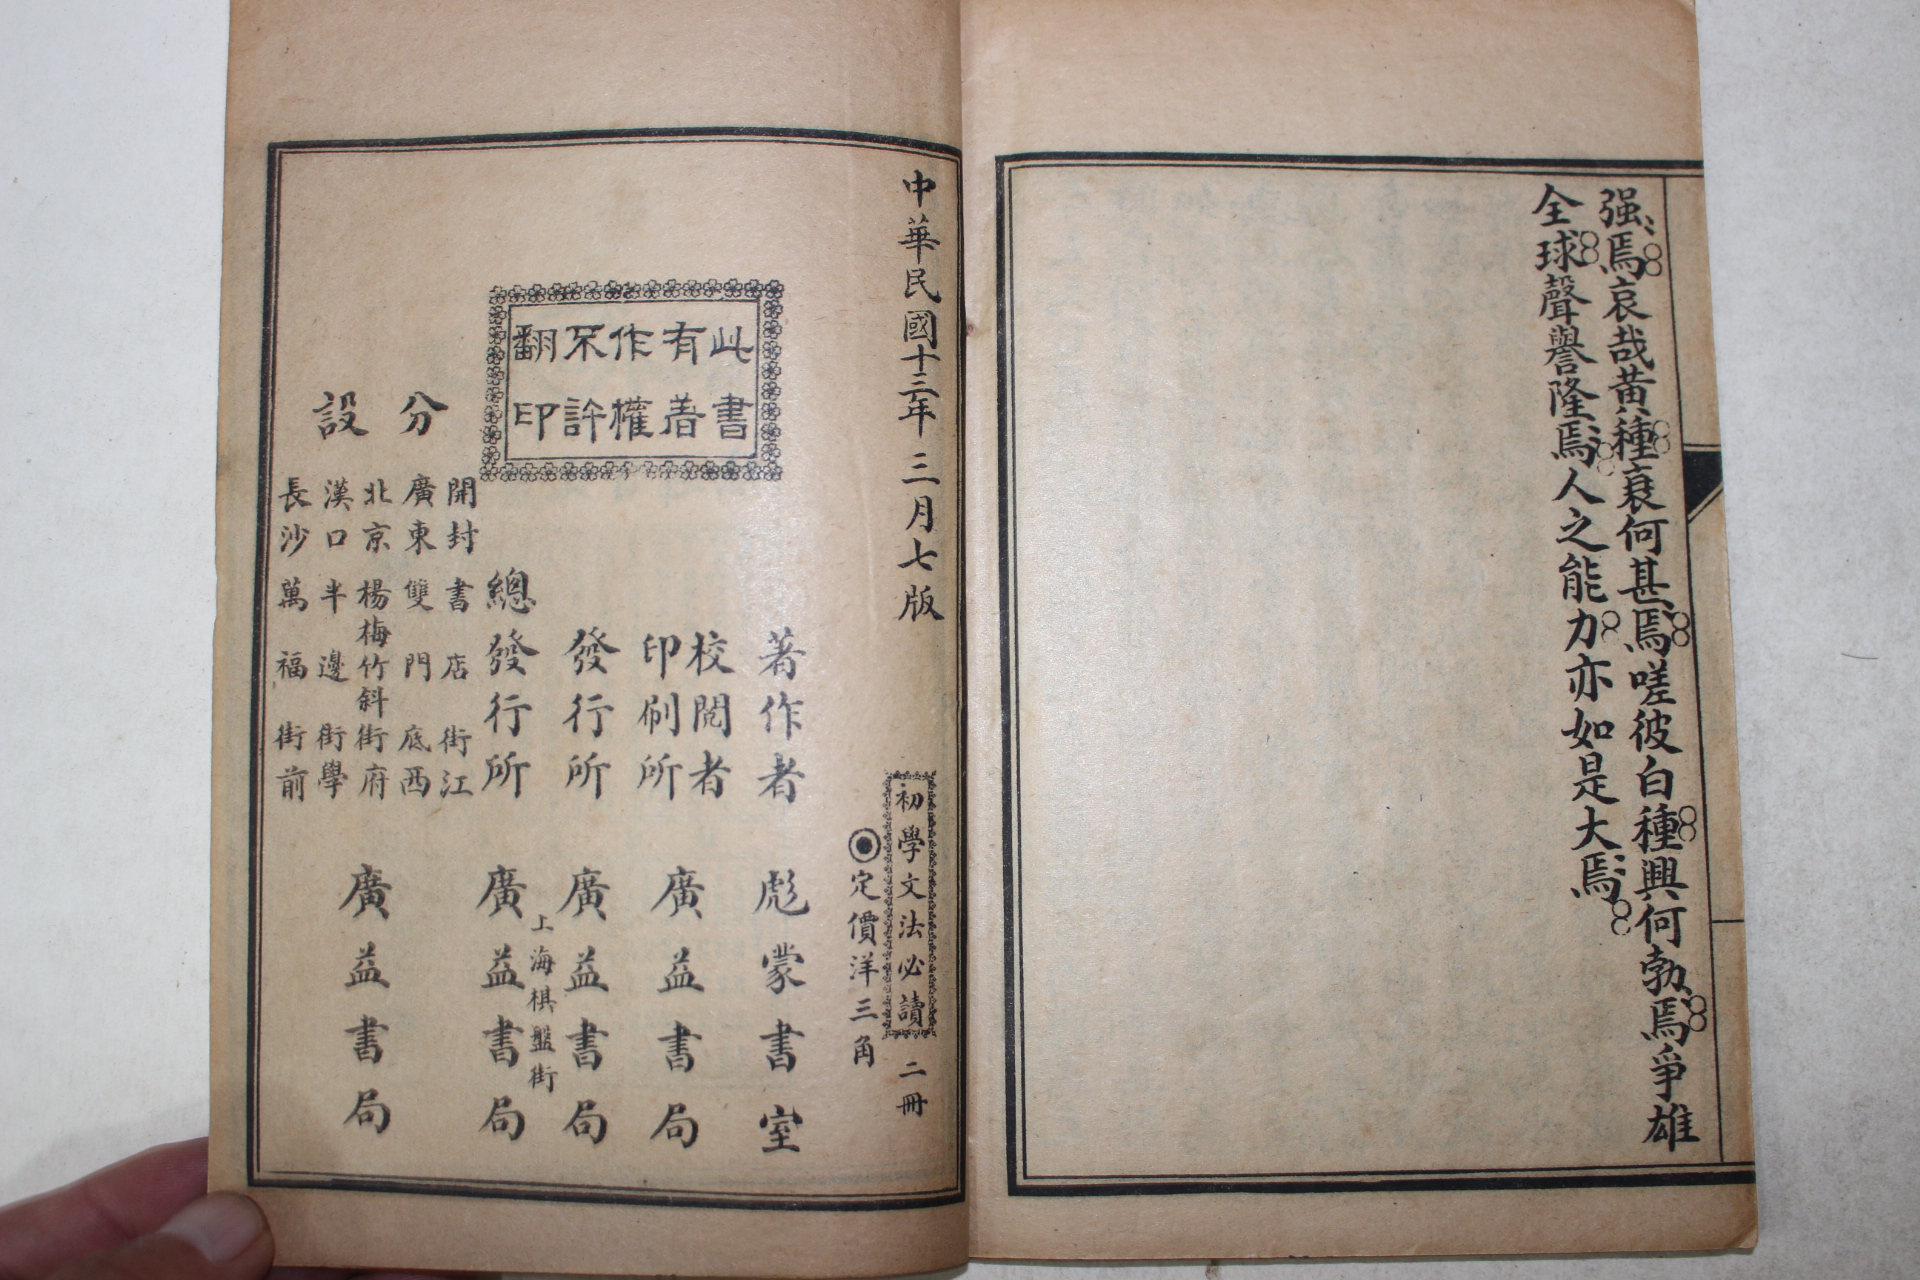 强焉哀哉黃種衰何甚焉嗟彼白種興何勃焉爭雄
全球聲譽隆焉人之能力亦如是大焉
中華民國十三年三月七版
初學文法必讀 二冊
◉定價洋三角
此書
有着
作權
不許
翻印
著作者 彪蒙書室
校閱者
印刷所 廣益書局
發行所 廣益書局
上海棋盤街
總發行所 廣益書局
分設
開封書店街江
廣東雙門底西
北京楊梅竹斜街府
漢口半邊街學
長沙萬福街前
廣益書局